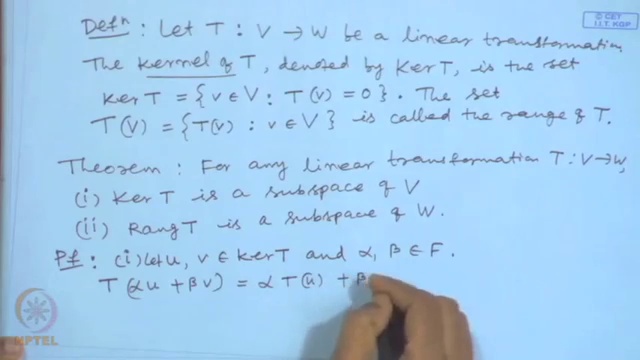 © CET
I.I.T. KGP
Defⁿ : Let T : V → W be a linear transformation
The Kernel of T, denoted by Ker T, is the set
Ker T = {v ∈ V : T(v) = 0}. The set
T(V) = {T(v) : v ∈ V} is called the range of T.
Theorem : For any linear transformation T : V → W,
(i) Ker T is a subspace of V
(ii) Rang T is a subspace of W.
Pf : (i) Let u, v ∈ Ker T and α, β ∈ F.
T(αu + βv) = α T(u) + β
NPTEL